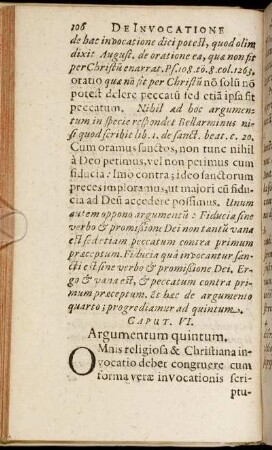 106 DE INVOCATIONE
de hac invocatione dici potest, quod olim
dixit August. de oratione ea, quæ non fit
per Christũ enarrat. Ps. 108. to. 8. col. 1263.
oratio quæ nõ fit per Christũ nõ solũ nõ
potest delere peccatũ sed etiã ipsa fit
peccatum. Nihil ad hoc argumen-
tum in specie respondet Bellarminus ni-
si quod scribit lib. 1. de sanct. beat. c. 20.
Cum oramus sanctos, non tunc nihil
à Deo petimus, vel non petimus cum
fiducia: Imo contra; ideo sanctorum
preces imploramus, ut majori cũ fidu-
cia ad Deũ accedere possimus. Unum
autem oppono argumentũ: Fiducia sine
verbo & promissione Dei non tantũ vana
est sed etiam peccatum contra primum
præceptum. Fiducia quâ invocantur san-
cti est sine verbo & promissione Dei. Er-
go & vana est, & peccatum contra pri-
mum præceptum. Et hæc de argumento
quarto; progrediamur ad quintum.
CAPUT. VI.
Argumentum quintum.
OMnis religiosa & Christiana in-
vocatio debet congruere cum
forma veræ invocationis scri-
ptu-